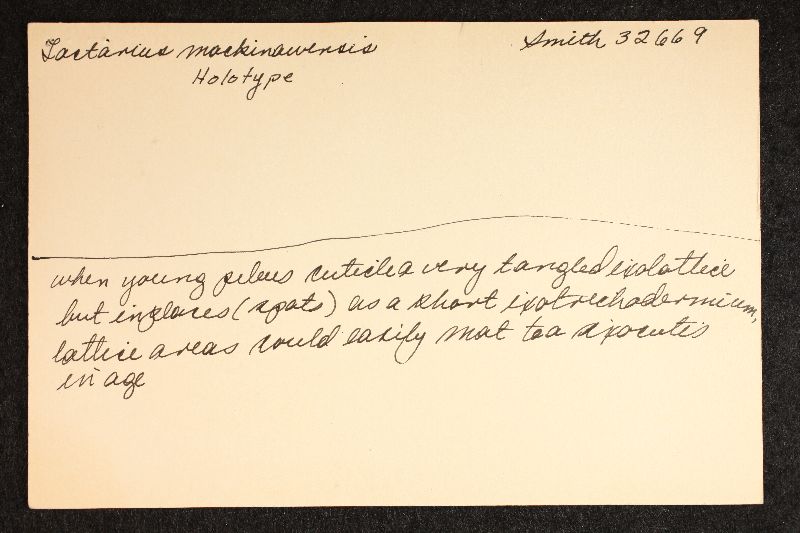 Lactarius mackinawensis Smith 32669
Holotype
when young pileus cuticle a very tangled ixolattice
but in places (spots) as a short ixotrichodermium,
lattice areas could easily mat to a ixocutis
in age